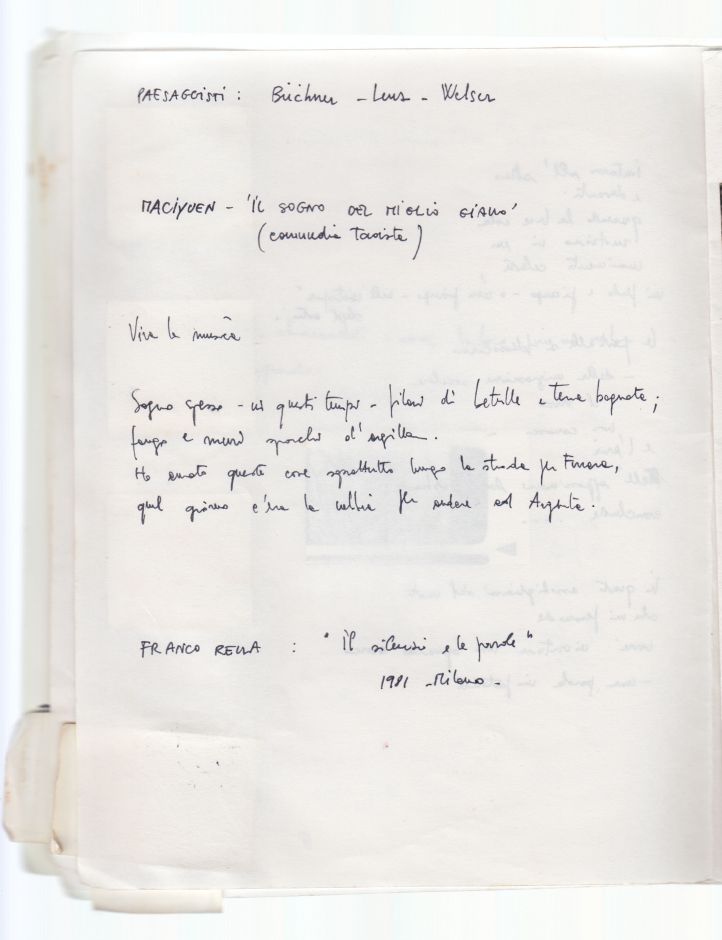 PAESAGGISTI : Büchner - Lenz - Welser
MACIYUEN - 'IL SOGNO DEL MIGLIO GIALLO'
(commedia Taoista)
Viva la musica
Sogno spesso - in questi tempi - filari di betulle e terra bagnata ;
fango e muri sporchi d'argilla.
Ho amato queste cose soprattutto lungo la strada per Ferrara,
quel giorno c'era la nebbia per andare ad Argenta.
FRANCO RELLA : " il silenzio e le parole "
1981 - Milano -